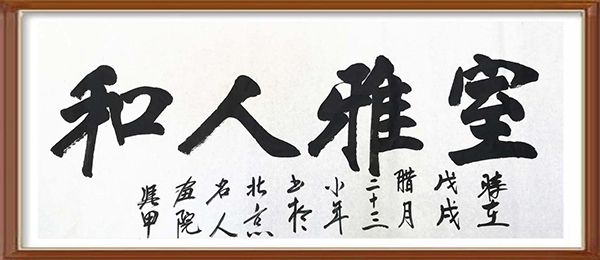 室雅人和
時在
戊戌
腊月
二十三
小年
书於
北京
名人
画院